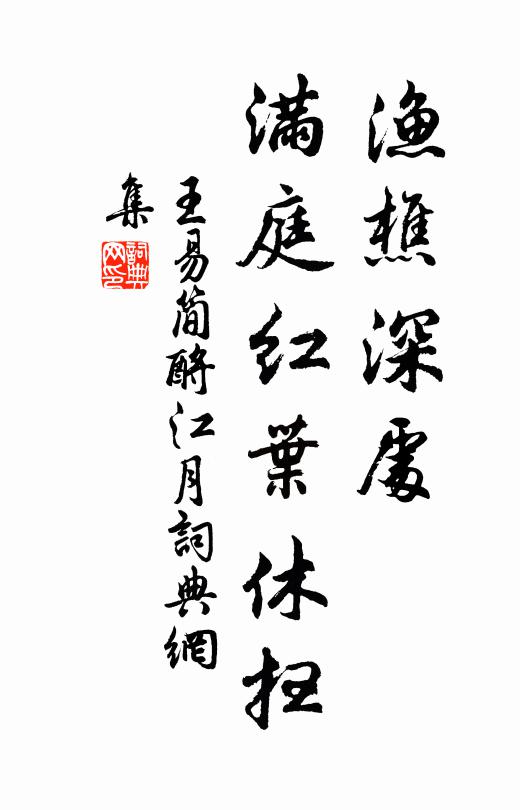 漁樵深處
滿庭紅葉休掃
王易簡酹江月詞典網
集
詞典網印